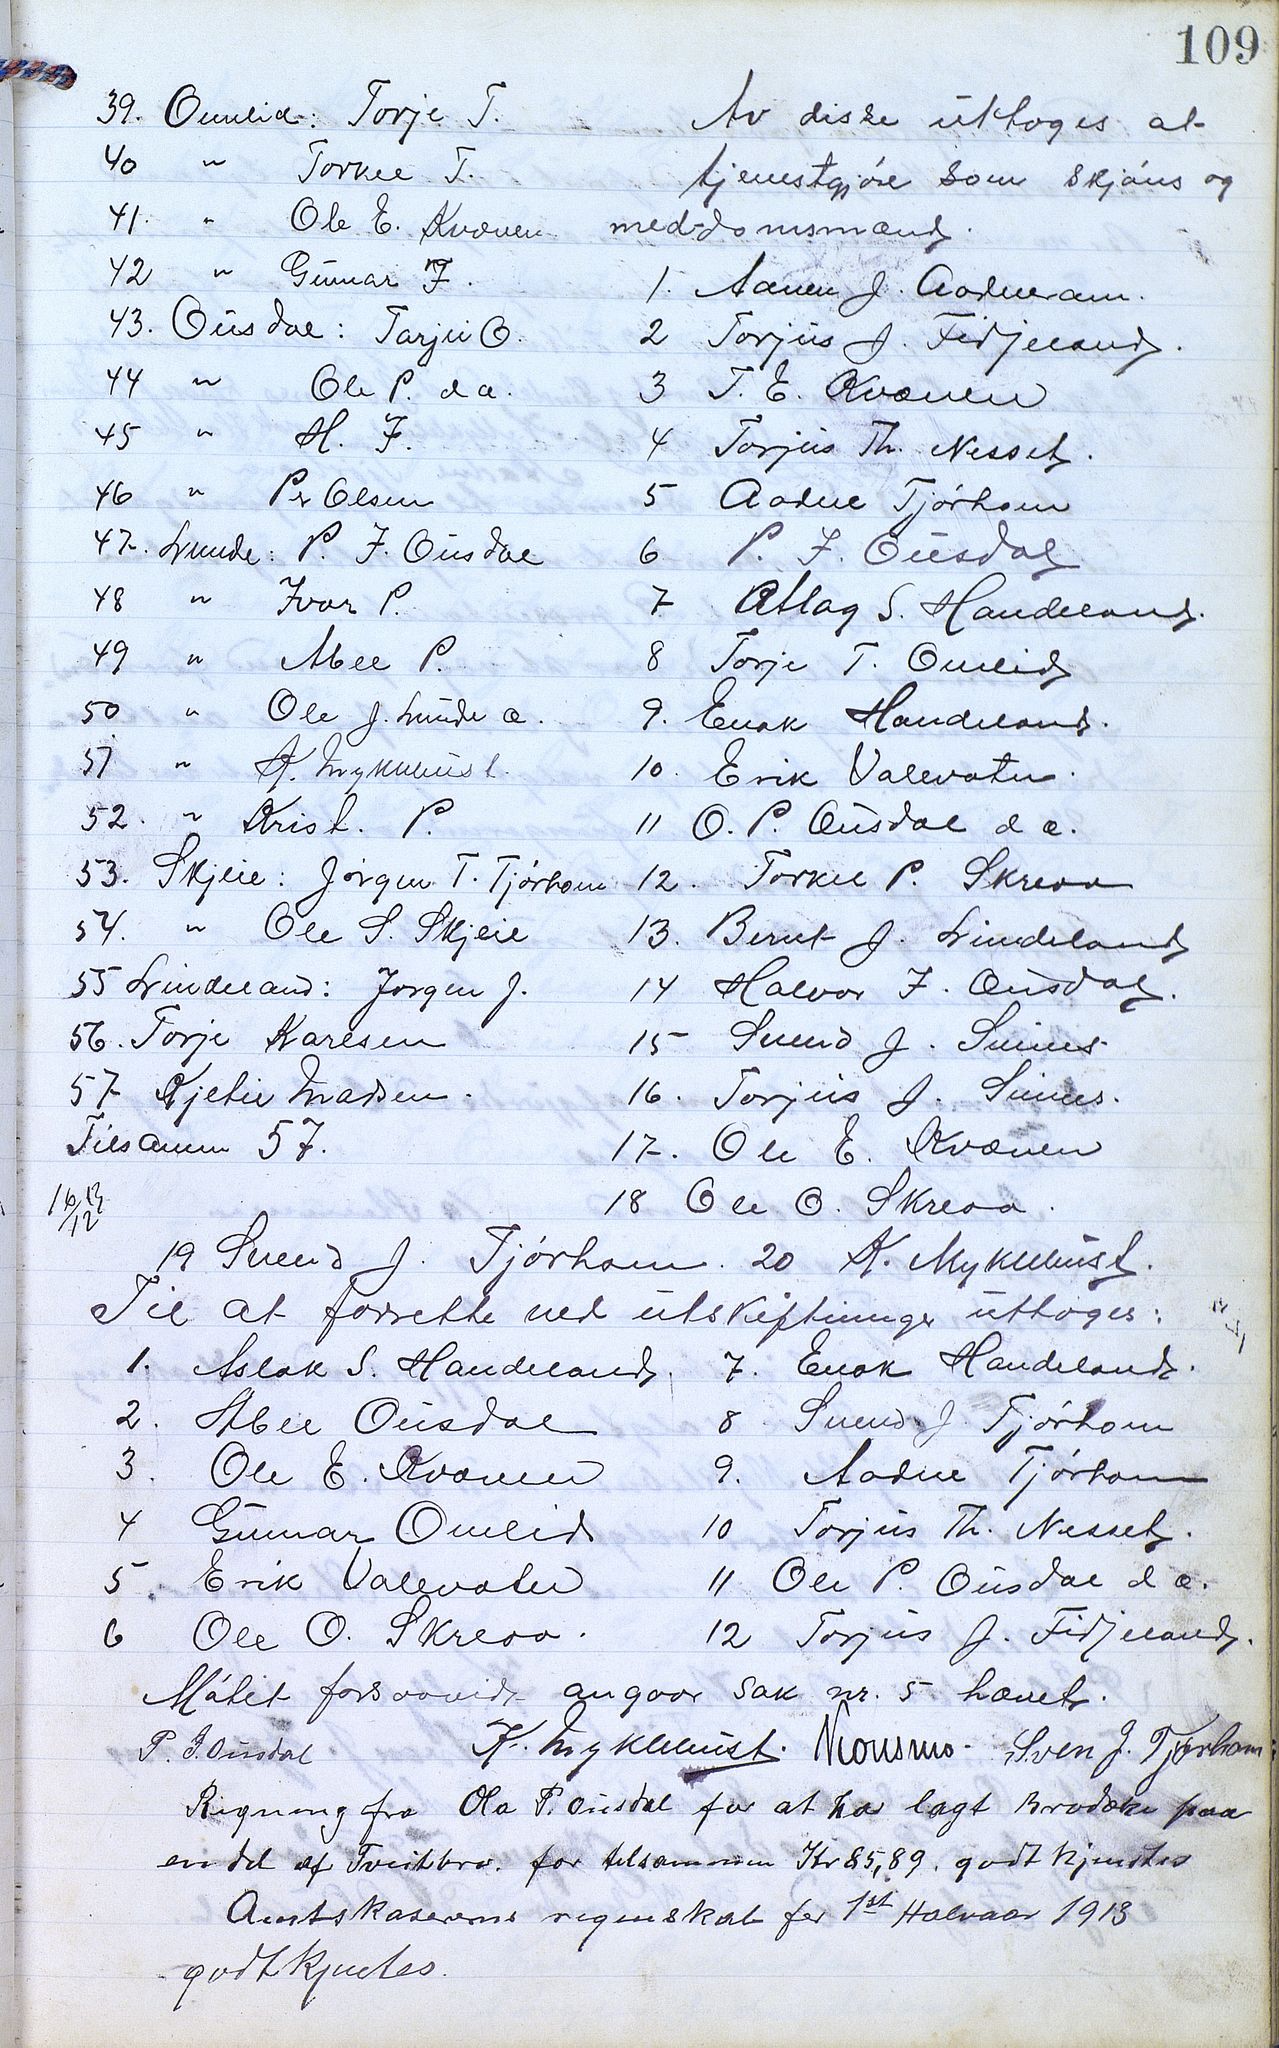 109
39. Omlid: Torje T.
40 " Torkel T.
41. " Ole E. Kvæven
42 " Gunnar F.
43. Ousdal: Tarjei O.
44 " Ole P. d æ.
45 " H. F.
46 " Pr Olsen
47. Lunde: P. F. Ousdal
48 " Ivar P.
49 " Abel P.
50 " Ole J. Lunde æ.
51 " K. Myklebust
52. " Krist. P.
53. Skjeie: Jørgen T. Tjørhom
54. " Ole S. Skjeie
55 Lindeland: Jørgen J.
56. Torje Karlsen
57 Kjetil Madsen.
Tilsamm 57.
16/12 13
Av disse uttoges at
tjenestgjøre som skjøns og
med-domsmænd.
1. Aanen J. Aadneram.
2 Torjus J. Fidjeland.
3 T. E. Kvæven
4 Torjus Th. Nesset.
5 Aadne Tjørhom
6 P. F. Ousdal
7 Atlag S. Handeland.
8 Torje T. Omlid
9. Enok Handeland.
10. Erik Valevatn.
11 O. P. Ousdal d æ.
12. Torkel P. Skreaa
13. Bernt J. Lindeland
14 Halvor F. Ousdal.
15 Svend J. Sinnes
16. Torjus J. Sinnes.
17. Ole E. Kvæven
18 Ole O. Skreaa.
19 Svend J. Tjørhom. 20 K. Myklebust.
Til at forrette ved utskiftninger uttoges:
1. Aslak S. Handeland. 7. Enok Handeland.
2. Abel Ousdal 8 Svend J. Tjørhom
3. Ole E. Kvæven 9. Aadne Tjørhom
4 Gunnar Omlid 10 Torjus Th. Nesset.
5. Erik Valevatn 11 Ole P. Ousdal d æ.
6 Ole O. Skreaa. 12 Torjus J. Fidjeland.
Møtet forsaavidt angaar sak nr. 5 hævet.
P. F. Ousdal K. Myklebust. Sven J. Tjørhom
Rigning fra Ola P. Ousdal for at ha lagt Brodække paa
en del af Tveitbro. for tilsammen Kr 85,89. godtkjendtes
Amtskasserens regnskab for 1st Halvaar 1913
godtkjentes.